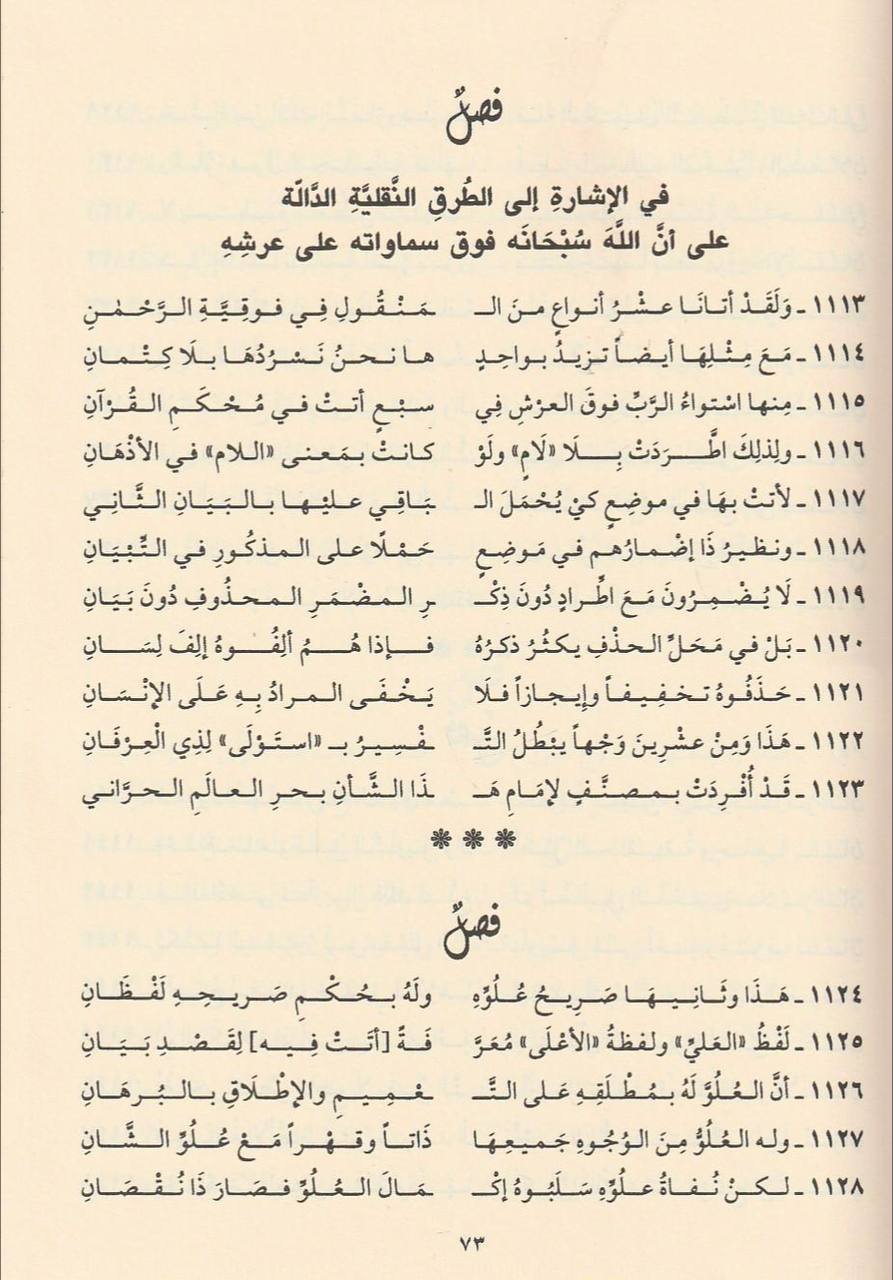 فصلٌ
في الإشارةِ إلى الطُرقِ النَّقليَّةِ الدَّالّة
على أنَّ اللَّهَ سُبْحَانَه فوق سماواته على عرشِهِ
١١١٣ ـ وَلَقَدْ أتانَا عشْرُ أنواعٍ منَ الـ ـمَنْقُولِ فِي فوقِيَّةِ الرَّحْمٰنِ
١١١٤ ـ مَعَ مِثْلِهَا أيضاً تزيدُ بواحِدٍ ها نحنُ نَسْرُدُهَا بلَا كِتْمانِ
١١١٥ ـ مِنها اسْتواءُ الرَّبِّ فوقَ العرْشِ فِي سبْعٍ أتتْ في مُحْكَمِ القُرْآنِ
١١١٦ ـ ولِذلِكَ اطَّرَدَتْ بِلَا «لَامٍ» ولَوْ كانتْ بمَعنى «اللام» في الأذْهَانِ
١١١٧ ـ لأتتْ بهَا في موضِعٍ كيْ يُحْمَلَ الـ ـبَاقِي عليْها بالبَيَانِ الثَّانِي
١١١٨ ـ ونظيرُ ذَا إضْمارُهم في مَوضِعٍ حَمْلًا على المذكُورِ في التِّبْيَانِ
١١١٩ ـ لَا يُضْمِرُونَ مَعَ اطِّرادٍ دُونَ ذِكْـ ـرِ المضْمَرِ المحذُوفِ دُونَ بَيَانِ
١١٢٠ ـ بَلْ في مَحَلِّ الحذْفِ يكثُرُ ذكرُهُ فإذا هُمُ ألِفُوهُ إلفَ لِسَانِ
١١٢١ ـ حَذَفُوهُ تخفِيفاً وإيجازاً فلَا يَخْفَى المرادُ بِهِ عَلَى الإنْسَانِ
١١٢٢ ـ هَذَا وَمِنْ عشْرِينَ وَجْهاً يبْطُلُ التَّـ ـفْسِيرُ بـ «استَوْلَى» لِذِي الْعِرْفَانِ
١١٢٣ ـ قَدْ أُفْرِدَتْ بمصنَّفٍ لإمَامِ هَـ ـذَا الشَّأنِ بحرِ العالَمِ الحرَّاني
فصلٌ
١١٢٤ ـ هَذَا وثَانِيهَا صَرِيحُ عُلُوِّهِ ولَهُ بحُكْمِ صَرِيحِهِ لَفْظَانِ
١١٢٥ ـ لَفْظُ «العَليِّ» ولفظةُ «الأعْلَى» مُعَرَّ فَةً [أتَتْ فِيهِ] لِقَصْدِ بَيَانِ
١١٢٦ ـ أنَّ العُلُوَّ لَهُ بمُطْلَقِهِ عَلى التَّـ ـعْمِيمِ والإطْلَاقِ بالبُرهَانِ
١١٢٧ ـ وله العُلُوُّ مِنَ الوُجُوهِ جَميعِهَا ذَاتاً وقهْراً مَعْ عُلُوِّ الشَّانِ
١١٢٨ ـ لكنْ نُفاةُ علُوِّهِ سَلَبُوهُ إكْـ ـمَالَ العُلُوِّ فصَارَ ذَا نُقْصَانِ
٧٣